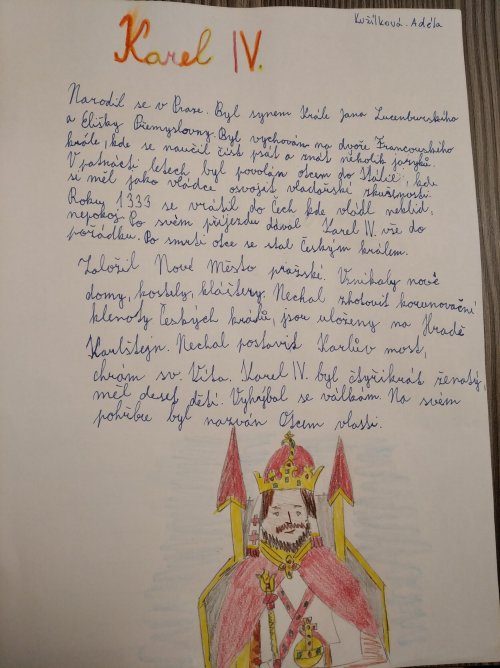 Kužílková. Adéla
Karel IV.
Narodil se v Praze. Byl synem Krále Jana Lucemburského
a Elišky Přemyslovny. Byl vychován na dvoře Francouského
krále, kde se naučil číst psát a znát několik jazyků
V patnácti letech byl povolán otcem do Itálie, kde
si měl jako vládce osvojit vladařské zkušenosti.
Roku 1333 se vrátil do Čech kde vládl neklid,
nepokoj. Po svém příjezdu dával Karel IV. vše do
pořádku. Po smrti otce se stal Českým králem.
Založil Nové Město pražské. Vznikaly nové
domy, kostely, kláštery. Nechal zhotovit korunovační
klenoty Českých králů, jsou uloženy na Hradě
Karlštejn. Nechal postavit Karlův most,
chrám sv. Víta. Karel IV. byl čtyřikrát ženatý,
měl deset dětí. Vyhýbal se válkám. Na svém
pohřbu byl nazván Otcem vlasti.